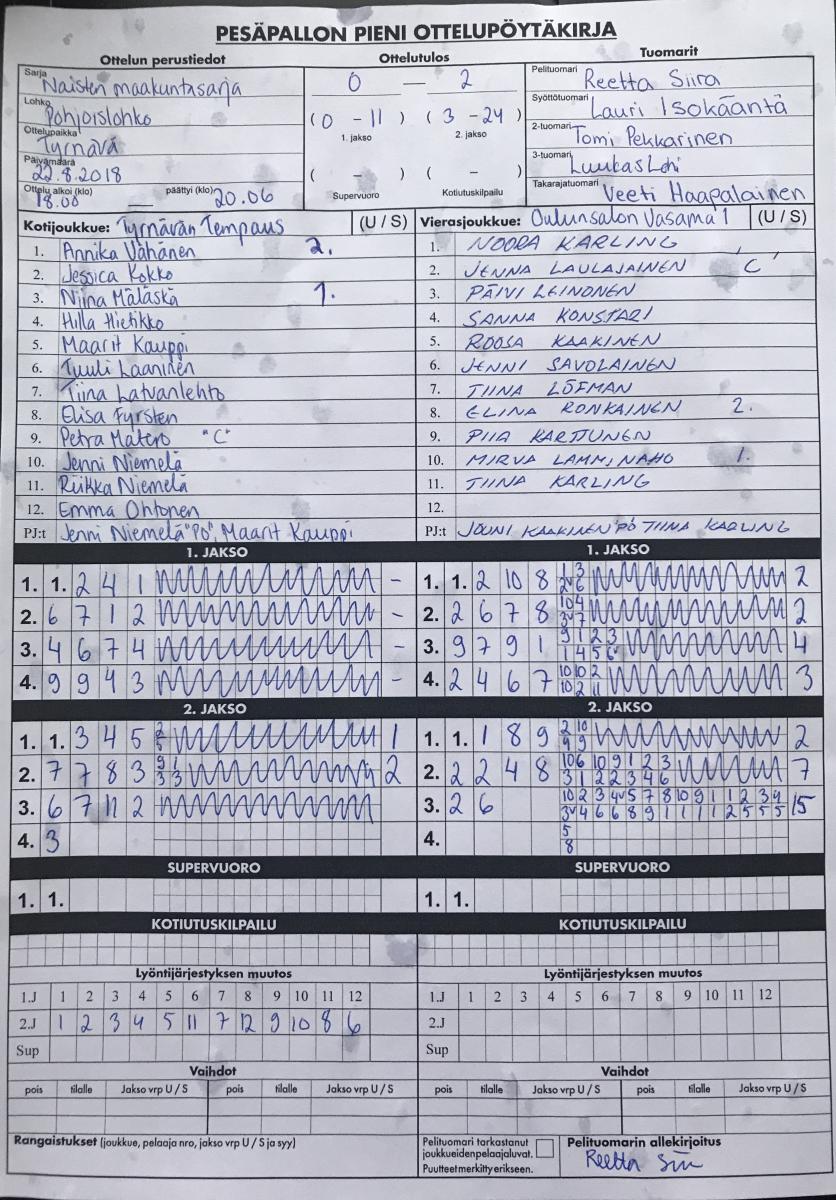 PESÄPALLON PIENI OTTELUPÖYTÄKIRJA
Ottelun perustiedot
Ottelutulos
Tuomarit
Sarja Naisten maakuntasarja
Lohko Pohjoislohko
Ottelupaikka Tyrnävä
Päivämäärä 22.8.2018
Ottelu alkoi (klo) 18.00 päättyi (klo) 20.06
0 — 2
(0 - 11) (3 - 24)
1. jakso 2. jakso
( - ) ( - )
Supervuoro Kotiutuskilpailu
Pelituomari Reetta Siira
Syöttötuomari Lauri Isokääntä
2-tuomari Tomi Pekkarinen
3-tuomari Luukas Lohi
Takarajatuomari Veeti Haapalainen
Kotijoukkue: Tyrnävän Tempaus (U / S)
1. Annika Vähänen 2.
2. Jessica Kokko
3. Niina Mäläskä 1.
4. Hilla Hietikko
5. Maarit Kauppi
6. Tuuli Laaninen
7. Tiina Latvanlehto
8. Elisa Fyrsten
9. Petra Matero "C"
10. Jenni Niemelä
11. Riikka Niemelä
12. Emma Ohtonen
PJ:t Jenni Niemelä "PO", Maarit Kauppi
Vierasjoukkue: Oulunsalon Vasama 1 (U / S)
1. NOORA KARLING
2. JENNA LAULAJAINEN 'C'
3. PÄIVI LEINONEN
4. SANNA KONSTARI
5. ROOSA KAAKINEN
6. JENNI SAVOLAINEN
7. TIINA LÖFMAN
8. ELINA RONKAINEN 2.
9. PIIA KARTTUNEN
10. MIRVA LAMMINAHO 1.
11. TIINA KARLING
12.
PJ:t JOUNI KAAKINEN PO TIINA KARLING
1. JAKSO
1. 1. 2 4 1 -
2. 6 7 1 2 -
3. 4 6 7 4 -
4. 9 9 4 3 -
2. JAKSO
1. 1. 3 4 5 1
2. 7 7 8 3 2
3. 6 7 11 2
4. 3
SUPERVUORO
1. 1.
KOTIUTUSKILPAILU
1. JAKSO
1. 1. 2 10 8 2
2. 2 6 7 8 2
3. 9 7 9 1 9 1 2 3 4
1 4 5 6
4. 2 4 6 7 10 10 2 3
10 2 11
2. JAKSO
1. 1. 1 8 9 2 10 2
9 9
2. 2 2 4 8 10 6 10 9 1 2 3 7
3 1 2 2 3 4 6
3. 2 6 10 2 3 4v 5 7 8 10 9 1 1 2 3 4 15
3v 4 6 6 8 9 1 1 1 1 2 5 5 5
4. 5
8
SUPERVUORO
1. 1.
KOTIUTUSKILPAILU
Lyöntijärjestyksen muutos
1.J 1 2 3 4 5 6 7 8 9 10 11 12
2.J 1 2 3 4 5 11 7 12 9 10 8 6
Sup
Vaihdot
pois tilalle Jakso vrp U / S pois tilalle Jakso vrp U / S
Lyöntijärjestyksen muutos
1.J 1 2 3 4 5 6 7 8 9 10 11 12
2.J
Sup
Vaihdot
pois tilalle Jakso vrp U / S pois tilalle Jakso vrp U / S
Rangaistukset (joukkue, pelaaja nro, jakso vrp U / S ja syy)
Pelituomari tarkastanut
joukkueidenpelaajaluvat.
Puutteet merkitty erikseen.
Pelituomarin allekirjoitus
Reetta Siira